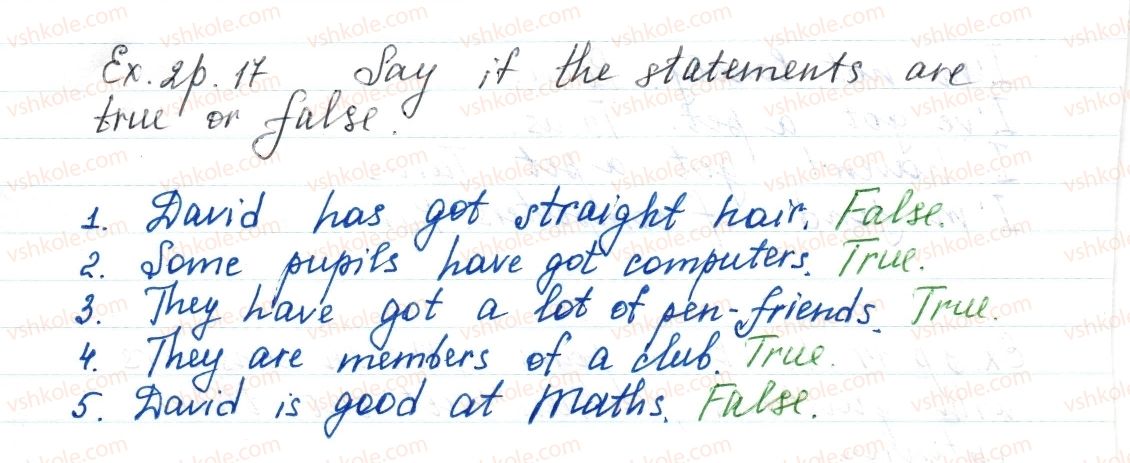 Ex. 2p. 17 Say if the statements are
true or false.
1. David has got straight hair. False.
2. Some pupils have got computers. True.
3. They have got a lot of pen-friends. True.
4. They are members of a club. True.
5. David is good at Maths. False.